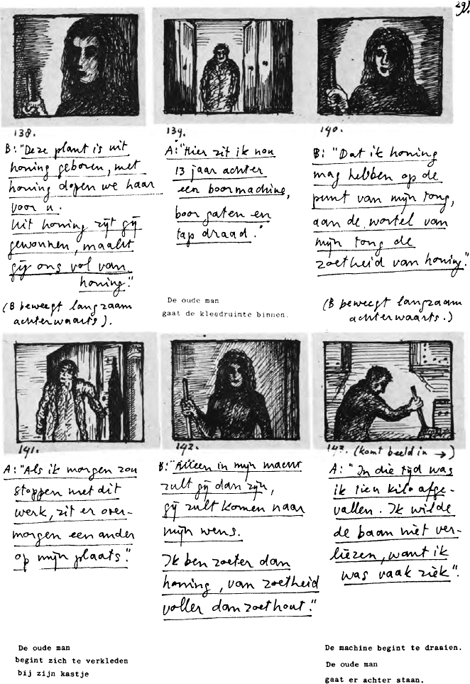 29/.
138.
B: "Deze plant is uit
honing geboren, met
honing dopen we haar
voor u.
Uit honing zijt gij
gewonnen, maakt
gij ons vol van
honing."
(B beweegt langzaam
achterwaarts).
139.
A: "Hier zit ik nou
13 jaar achter
een boormachine,
boor gaten en
tap draad."
De oude man
gaat de kleedruimte binnen.
140.
B: "Dat ik honing
mag hebben op de
punt van mijn tong,
aan de wortel van
mijn tong de
zoetheid van honing."
(B beweegt langzaam
achterwaarts.)
141.
A: "Als ik morgen zou
stoppen met dit
werk, zit er over-
morgen een ander
op mijn plaats."
De oude man
begint zich te verkleden
bij zijn kastje
142.
B: "Alleen in mijn macht
zult gij dan zijn,
gij zult komen naar
mijn wens.
Ik ben zoeter dan
honing, van zoetheid
voller dan zoethout."
143. (komt beeld in →)
A: "In die tijd was
ik tien kilo afge-
vallen. Ik wilde
de baan niet ver-
liezen, want ik
was vaak ziek".
De machine begint te draaien.
De oude man
gaat er achter staan.